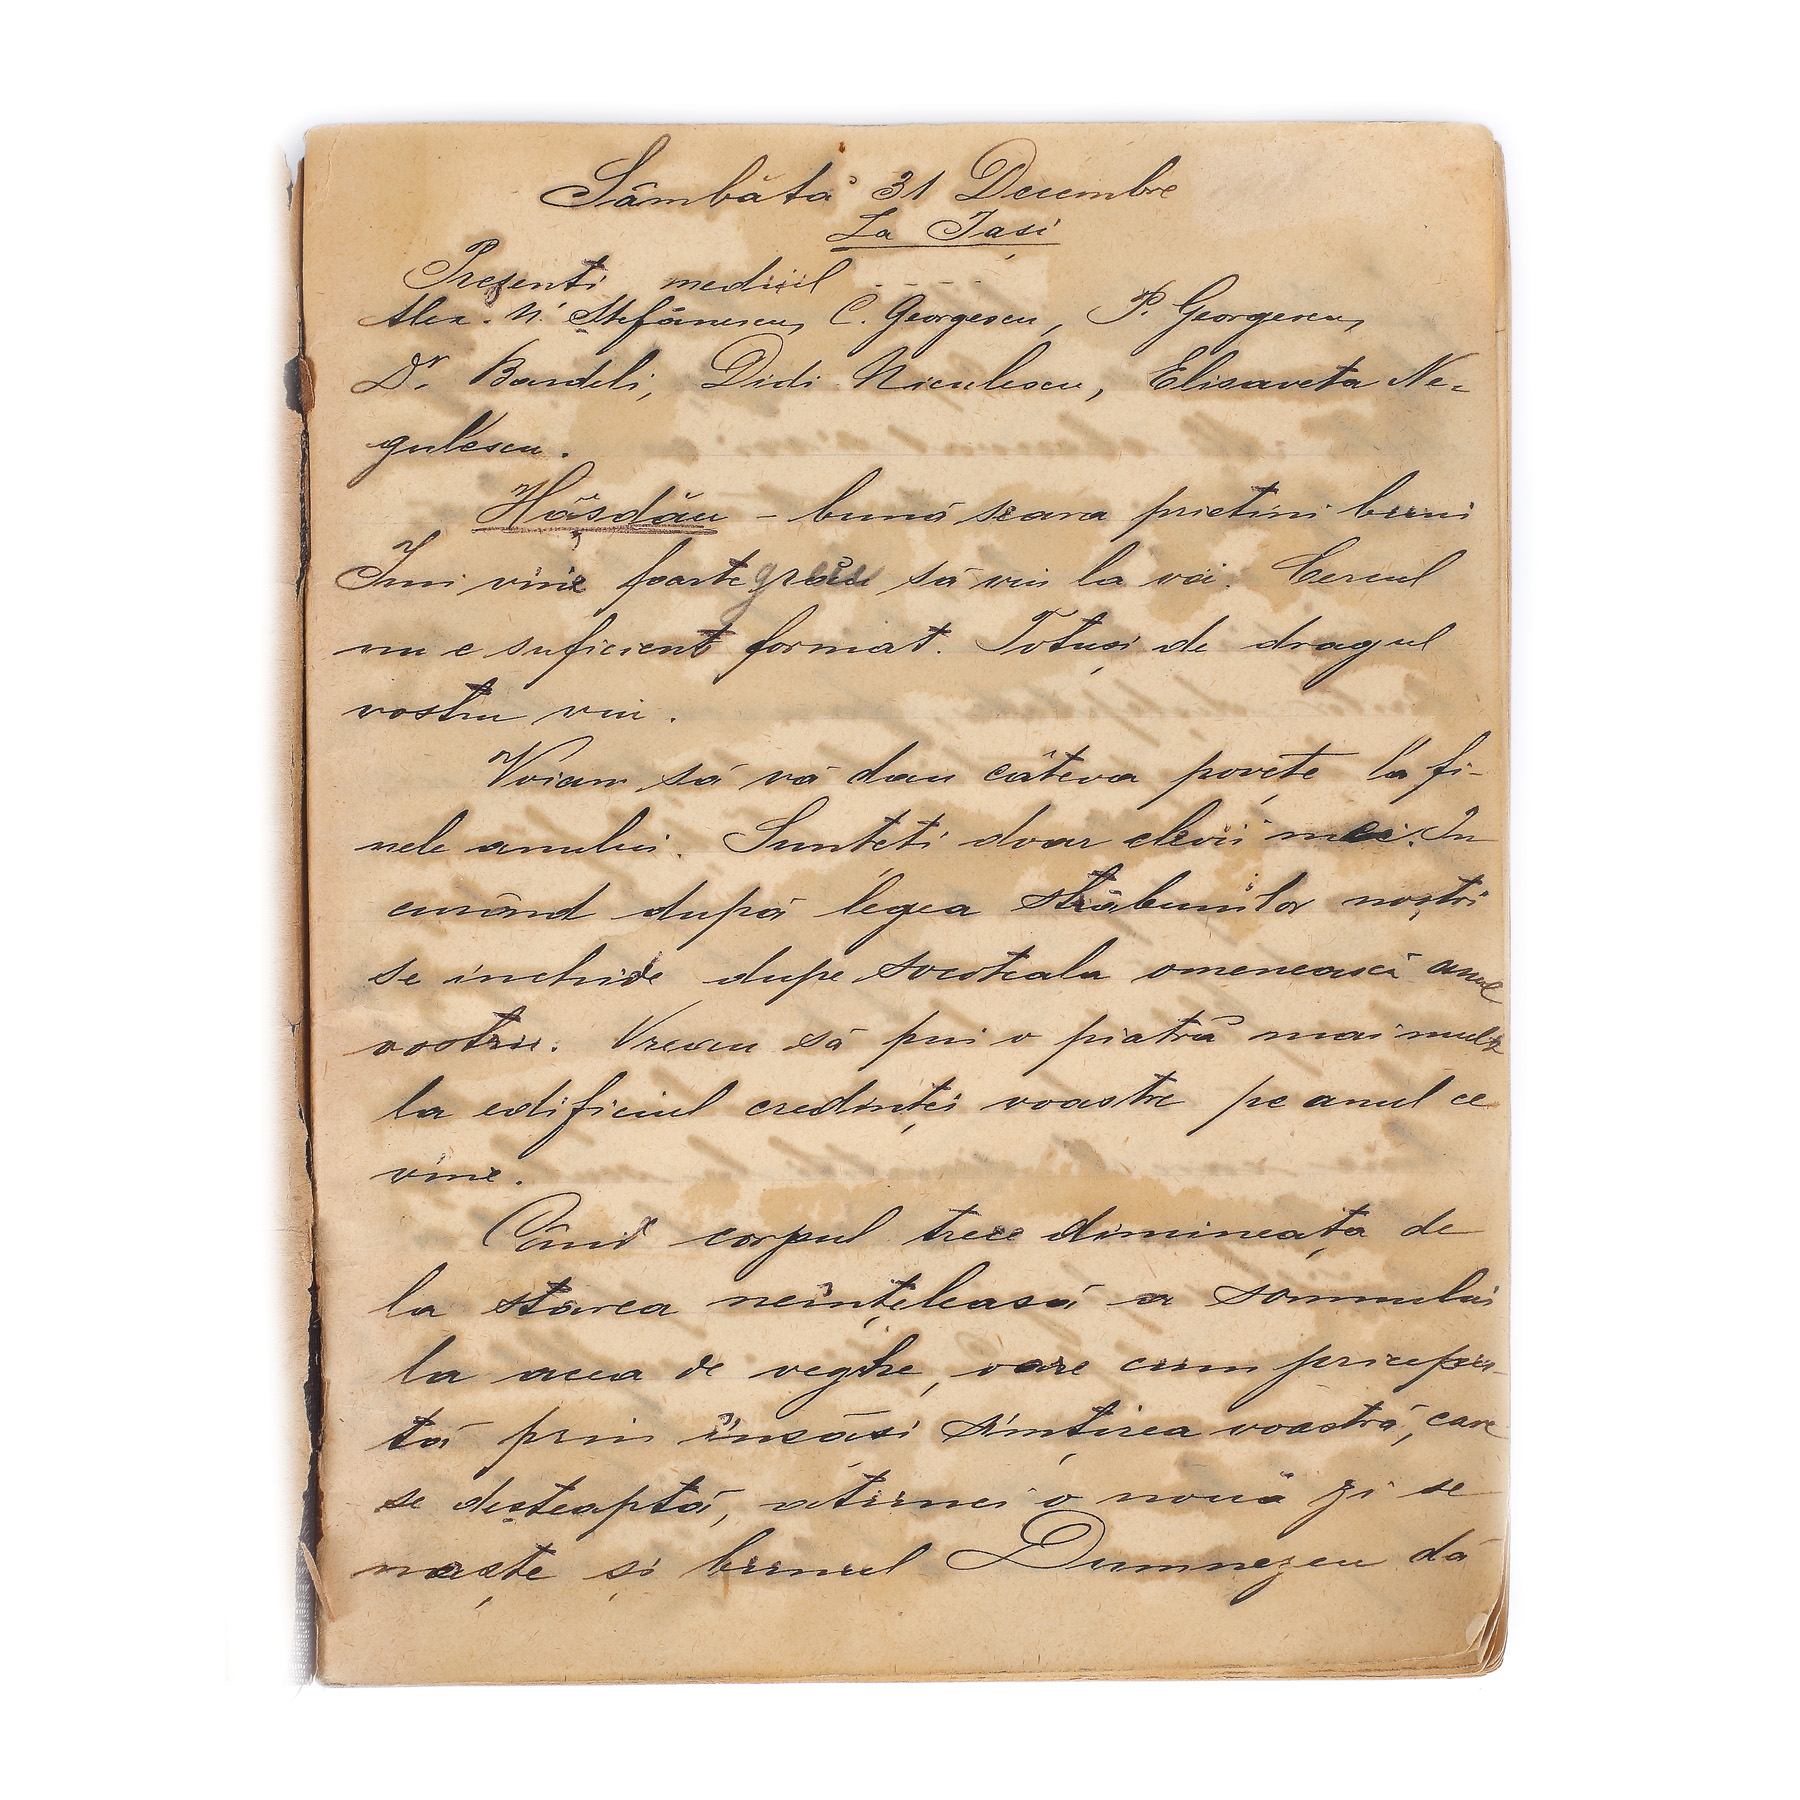 Sâmbătă 31 Decembre
La Iași
Prezenti mediul
Alex. N. Stefănescu, C. Georgescu, P. Georgescu,
Dr. Bardeli, Didi Niculescu, Elisaveta Ne-
gulescu.
Hăsdău – bună seara prietini buni
Imi vine foarte greu să viu la voi. Cercul
nu e suficient format. Totuși de dragul
vostru viu.
Voiam să vă dau câteva povețe la fi-
nele anului. Sunteti doar elevii mei. In
curând după legea străbunilor noștri
se inchide dupe socoteala omenească anul
vostru. Vreau să pui o piatră mai mult
la edificiul credinței voastre pe anul ce
vine.
Când corpul trece dimineața de
la starea neînțeleasă a somnului
la acea de veghe, oare cum pricepu-
tă prin însăși simțirea voastră, care
se deșteaptă, atunci o nouă zi se
naște și bunul Dumnezeu dă